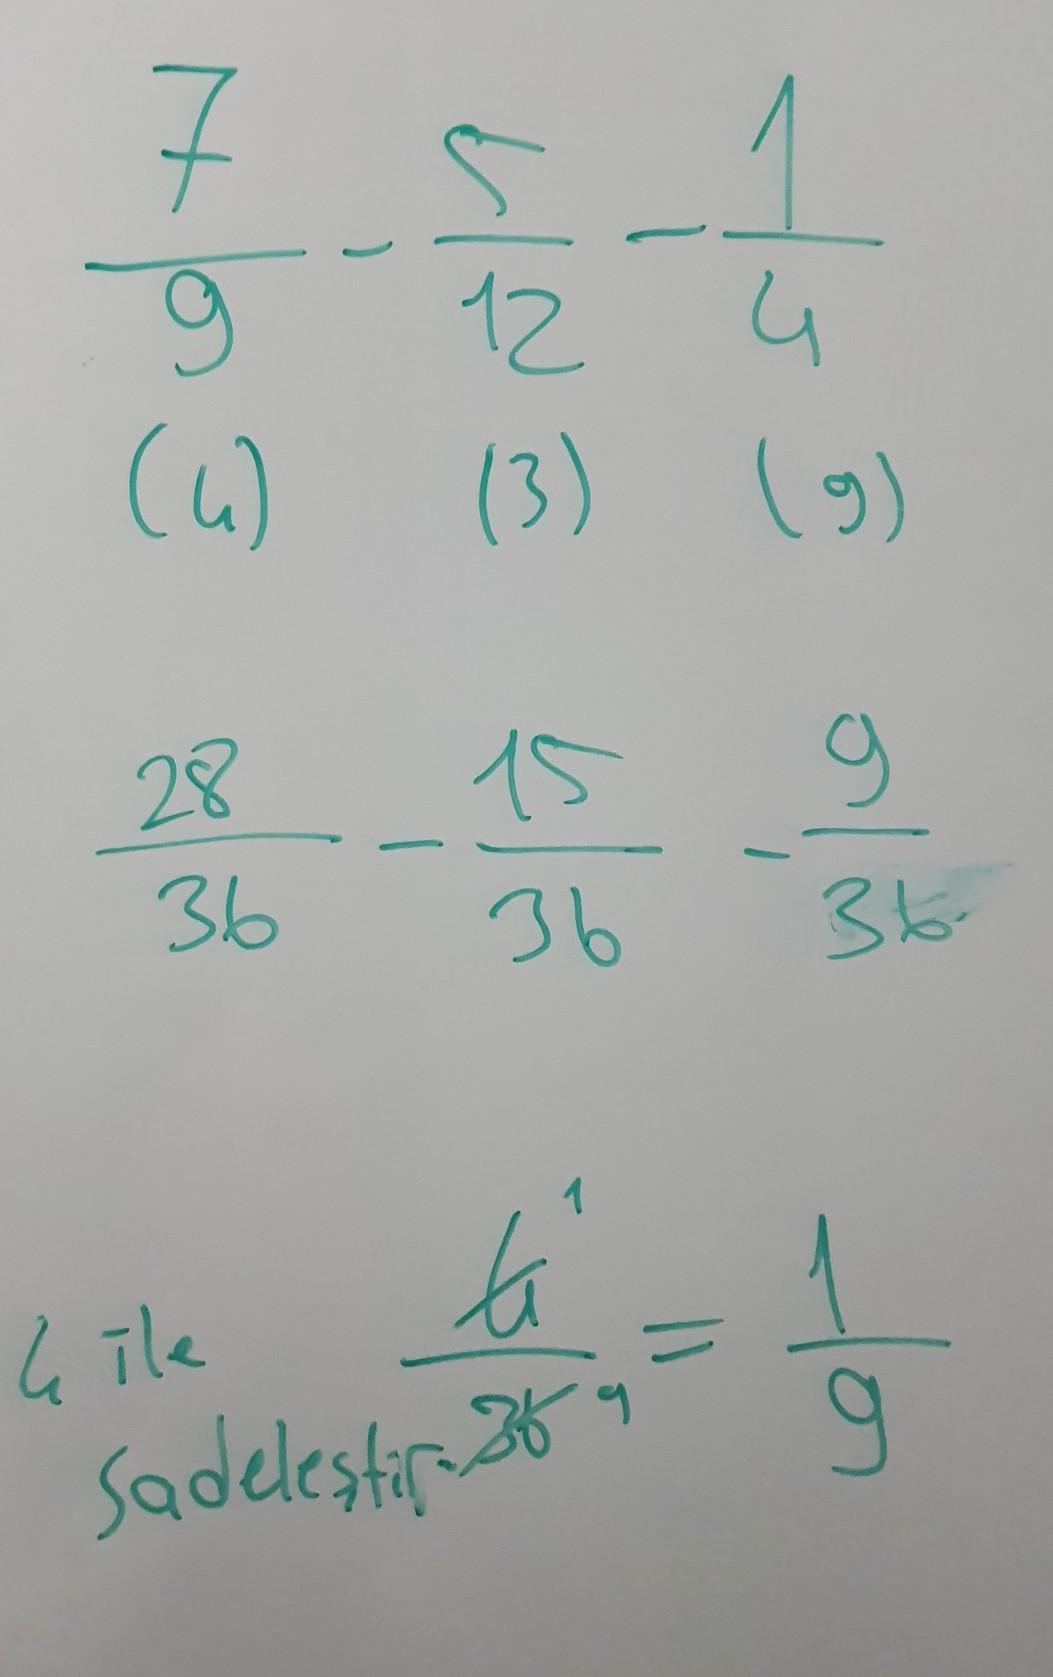 7/9 - 5/12 - 1/4
(4) (3) (9)
28/36 - 15/36 - 9/36
4 ile sadeleştir. 4/36 1 9 = 1/9